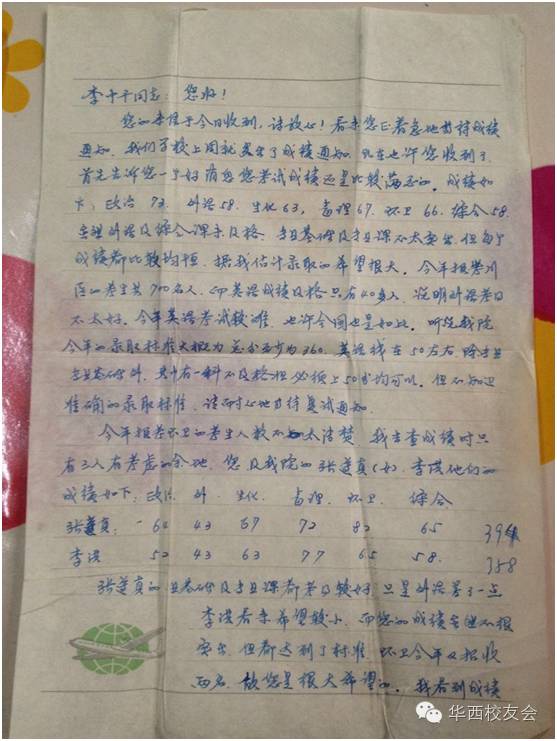 李十平同志：您好！
您的来信于今日收到，请放心！看来您正着急地等待成绩
通知，我们学校上周就发出了成绩通知，现在也许您收到了，
首先告诉您一个好消息您考试成绩还是比较满意的。成绩如
下：政治 73. 外语58. 生化63, 毒理67. 环卫 66. 综合58.
虽外语及综合课未及格、专业基础及专业课不太突出，但每个
成绩都比较均恒，据我估计录取的希望很大。今年报考川
医的考生共700名人，而英语成绩及格只有40多人，说明外语考的
不太好。今年英语考试较难，也许全国也是如此。听说我院
今年的录取标准大概为总分至少为360，英语线在50左右，除专业
专业基础外，其中有一科不及格但必须上50分均可以。但不知道
准确的录取标准，请耐心地等待复试通知。
今年报考环卫的考生人数不太清楚，我去查成绩时只
有三人有考虑的余地，您及我院的张遵真（女），李洪他们的
成绩如下：政治. 外. 生化. 毒理. 环卫. 综合
张遵真： 64 43 67 72 82 65 394
李洪 52 43 63 77 65 58. 358
张遵真的专业基础及专业课都考得较好只是外语差了一点
李洪看来希望较小，而您的成绩虽然不很
突出，但都达到了标准，环卫今年又招收
两名，故您是很大希望的。我看到成绩
华西校友会